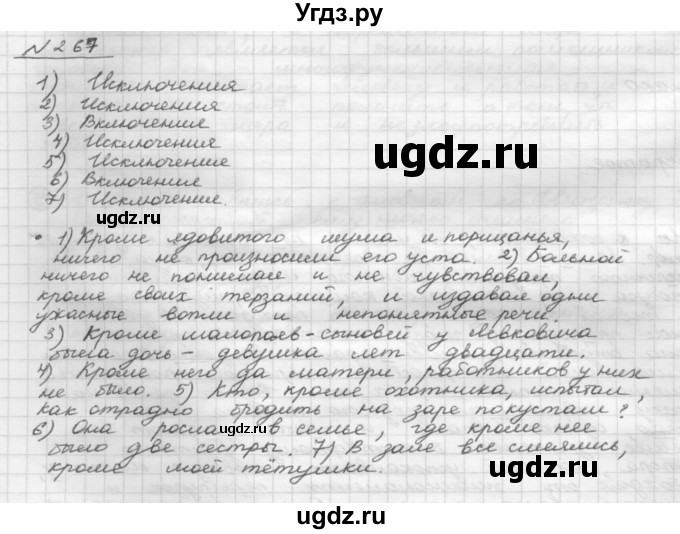 Угдз.ру
N 267
1) Исключения
2) Исключения
3) Включение
4) Исключение
5) Исключение
6) Включение
7) Исключение.
ugdz.ru
ugdz.ru
• 1) Кроме ядовитого шума и порицанья,
ничего не произносили его уста. 2) Больной
ничего не понимал и не чувствовал,
кроме своих терзаний, и издавал одни
ужасные вопли и непонятные речи.
3) Кроме шалопаев-сыновей у Левковича
была дочь - девушка лет двадцати.
4) Кроме него да матери, работников у них
не было. 5) Кто, кроме охотника, испытал,
как отрадно бродить на заре по кустам?
6) Она росла в семье, где кроме нее
было две сестры. 7) В зале все смеялись,
кроме моей тётушки.
ugdz.ru
ugdz.ru
ugdz.ru
ugdz.ru